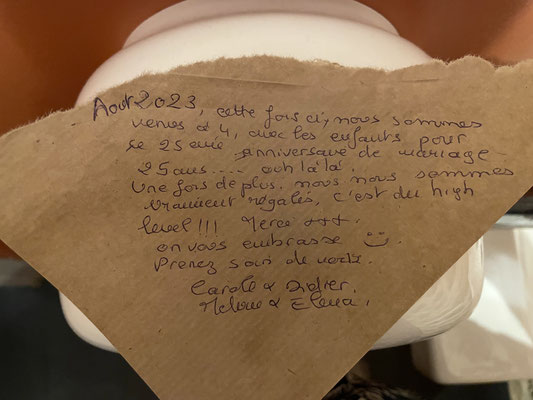 Aout 2023, cette fois ci, nous sommes
venus à 4, avec les enfants pour
le 25 eme anniversaire de mariage
25 ans.... ooh la la.
Une fois de plus, nous nous sommes
vraiment régalés, c'est du high
level!!! Merci +++.
on vous embrasse ☺.
Prenez soin de vous.
Carole & Didier,
& Elena,